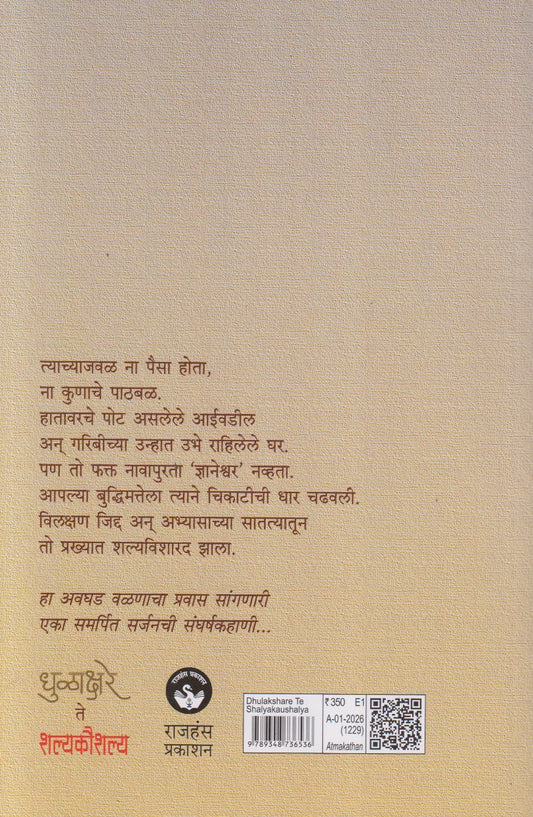 त्याच्याजवळ ना पैसा होता,
ना कुणाचे पाठबळ.
हातावरचे पोट असलेले आईवडील
अन् गरिबीच्या उन्हात उभे राहिलेले घर.
पण तो फक्त नावापुरता ‘ज्ञानेश्वर’ नव्हता.
आपल्या बुद्धिमत्तेला त्याने चिकाटीची धार चढवली.
विलक्षण जिद्द अन् अभ्यासाच्या सातत्यातून
तो प्रख्यात शल्यविशारद झाला.
हा अवघड वळणाचा प्रवास सांगणारी
एका समर्पित सर्जनची संघर्षकहाणी...
धुळाक्षरे
ते
शल्यकौशल्य
राजहंस प्रकाशन
राजहंस
प्रकाशन
Dhulakshare Te
Shalyakaushalya
9789348736536
₹350 E1
A-01-2026
(1229)
Atmakathan